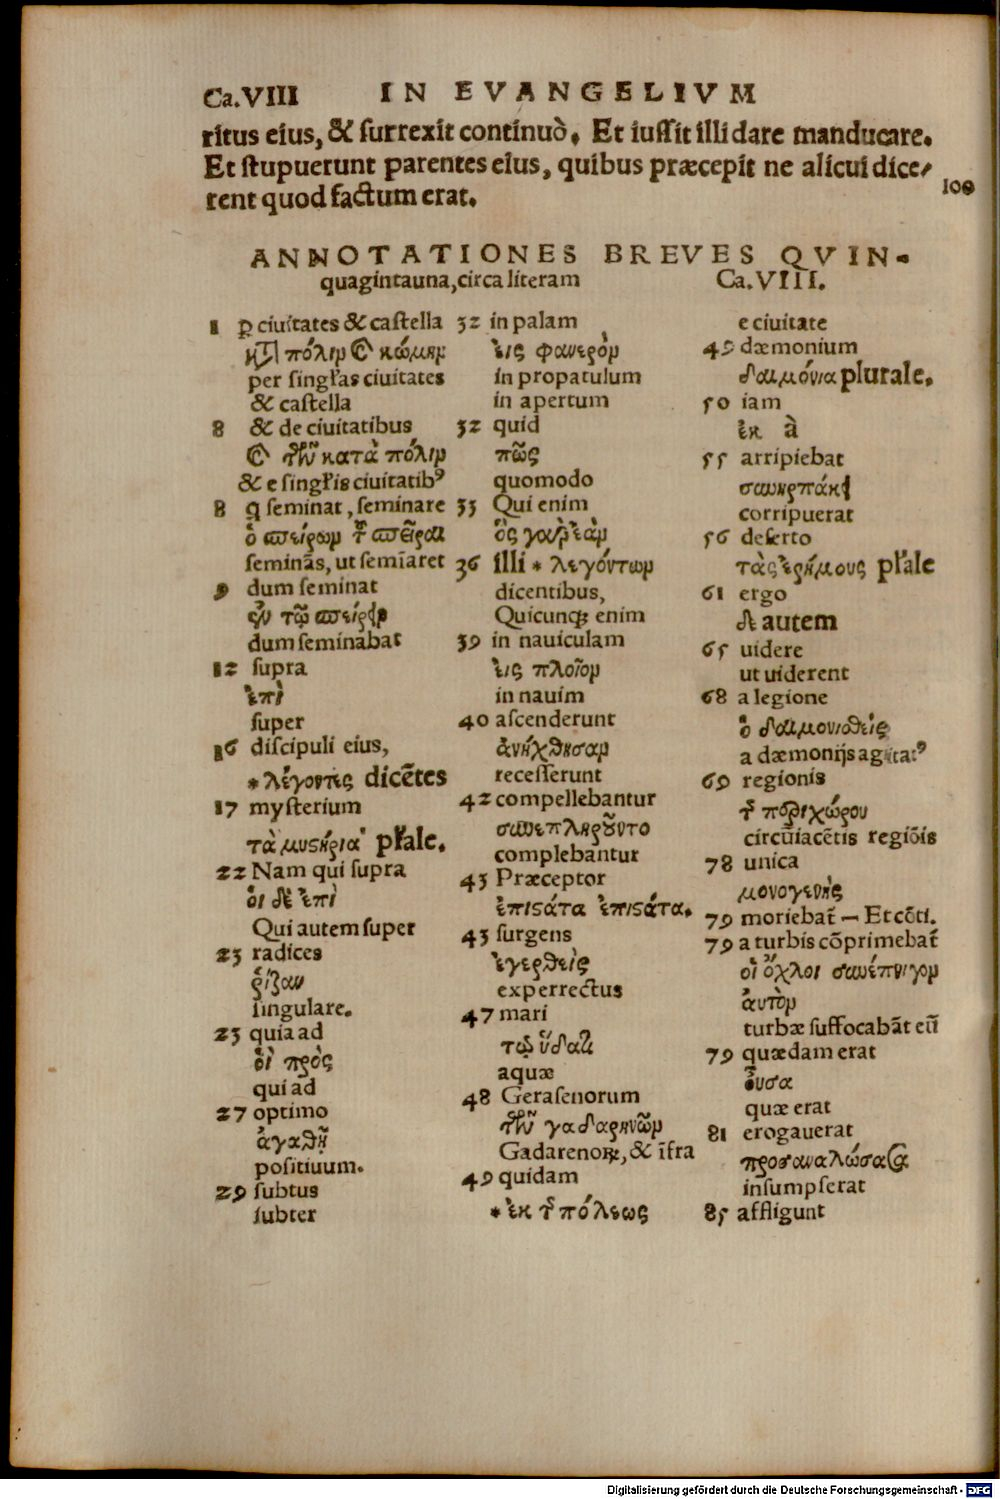 Ca.VIII IN EVANGELIVM
ritus eius, & surrexit continuò. Et iussit illi dare manducare.
Et stupuerunt parentes eius, quibus præcepit ne alicui dice/
rent quod factum erat.
100
ANNOTATIONES BREVES QVIN-
quagintauna, circa literam Ca.VIII.
1 ꝑ ciuitates & castella
κτ̀ πόλιν κ̀ κώμην
per singl̃as ciuitates
& castella
8 & de ciuitatibus
κ̀ τῶν κατὰ πόλιν
& e singl̃is ciuitatibꝰ
8 q̃ seminat, seminare
ὁ σπείρων τ͂ σπεῖραι
seminãs, ut semĩaret
9 dum seminat
ἐν τῷ σπείρειν
dum seminabat
12 supra
ἐπὶ
super
16 discipuli eius,
* λέγοντες dicẽtes
17 mysterium
τὰ μυϛήρια pl̃rale.
22 Nam qui supra
ὁι δὲ ἐπὶ
Qui autem super
23 radices
ῥίζαν
singulare.
23 quia ad
ὁὶ πρὸς
qui ad
27 optimo
ἀγαθῇ
positiuum.
29 subtus
subter
32 in palam
ἐις φανερὸν
in propatulum
in apertum
32 quid
πῶς
quomodo
33 Qui enim
ὃς γαρ̀ ἐὰν
36 illi * λεγόντων
dicentibus,
Quicunqꝫ enim
39 in nauiculam
ἐις πλοῖον
in nauim
40 ascenderunt
ἀνήχθησαν
recesserunt
42 compellebantur
συνεπληροῦντο
complebantur
43 Præceptor
ἐπιϛάτα ἐπιϛάτα.
43 surgens
ἐγερθεὶς
experrectus
47 mari
τῷ ὕδατι
aquæ
48 Gerasenorum
τῶν γαδαρηνῶν
Gadarenoꝝ, & ĩfra
49 quidam
* ἐκ τ͂ πόλεως
e ciuitate
49 dæmonium
δαιμόνια plurale.
50 iam
ἐκ ὰ
55 arripiebat
συνηρπάκει
corripuerat
56 deserto
τὰς ἐρήμους pl̃rale
61 ergo
δὲ autem
65 uidere
ut uiderent
68 a legione
ὁ δαιμονιοθεὶς
a dæmonijs agitatꝰ
69 regionis
τ͂ περιχώρου
circũiacẽtis regiõis
78 unica
μονογενὴς
79 moriebat̃ — Et cõti.
79 a turbis cõprimebat̃
οἱ ὄχλοι συνέπνιγον
ἀυτὸν
turbæ suffocabãt eũ
79 quædam erat
ὖσα
quæ erat
81 erogauerat
προσαναλώσασα
insumpserat
85 affligunt
Digitalisierung gefördert durch die Deutsche Forschungsgemeinschaft - DFG